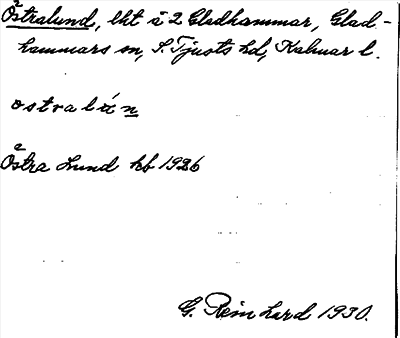 Östralund, lht å 2 Gladhammar, Glad-
hammars sn, S. Tjusts hd, Kalmar l.
östralún
Östra Lund kb 1926
G. Reinhard 1930.